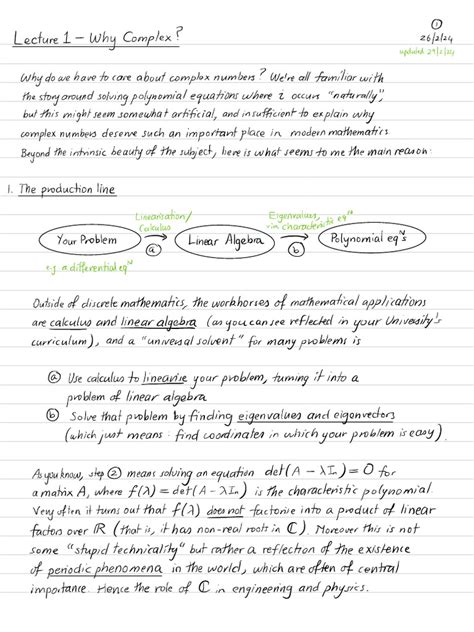 ①
Lecture 1 – Why Complex?
26/2/24
updated 29/2/24
Why do we have to care about complex numbers? We're all familiar with
the story around solving polynomial equations where i occurs "naturally",
but this might seem somewhat artificial, and insufficient to explain why
complex numbers deserve such an important place in modern mathematics.
Beyond the intrinsic beauty of the subject, here is what seems to me the main reason:
1. The production line
Linearisation/ Calculus
Eigenvalues, via characteristic eqⁿ
Your Problem → Linear Algebra → Polynomial eqⁿs
ⓐ ⓑ
e.g. a differential eqⁿ
Outside of discrete mathematics, the workhorses of mathematical applications
are calculus and linear algebra (as you can see reflected in your University's
curriculum), and a "universal solvent" for many problems is
ⓐ Use calculus to linearise your problem, turning it into a
problem of linear algebra
ⓑ Solve that problem by finding eigenvalues and eigenvectors
(which just means: find coordinates in which your problem is easy).
As you know, step ② means solving an equation det(A – λIₙ) = 0 for
a matrix A, where f(λ) = det(A – λIₙ) is the characteristic polynomial.
Very often it turns out that f(λ) does not factorise into a product of linear
factors over ℝ (that is, it has non-real roots in ℂ). Moreover this is not
some "stupid technicality" but rather a reflection of the existence
of periodic phenomena in the world, which are often of central
importance. Hence the role of ℂ in engineering and physics.